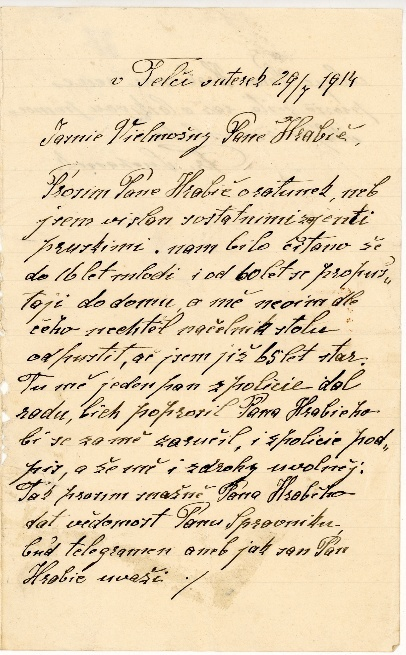 v Telči outerek 29/X 1914
Jasnie Vielmožny Pane Hrabie,
Prosim Pane Hrabie o ratunek, neb
jsem vislan s ostatnimi zajenti
pruskimi. nam bilo čitano že
do 16 let mlodi i od 60 let se propus„
taji do domu, a mě nevim dle
čeho nechtěl načelnik stolu
odpustit, ač jsem již 65 let star.
Tu mě jeden pan z policie dal
radu, bich poprosil Pana Hrabieho
bi se za mě zaručil, i z policie pod„
pis, a že mě i z drohy uvolněj.
Tak prosim snažně Pana Hrabieho
dat vědomost Panu Spravniku
buď telegramem aneb jak san Pan
Hrabie uvaži ./